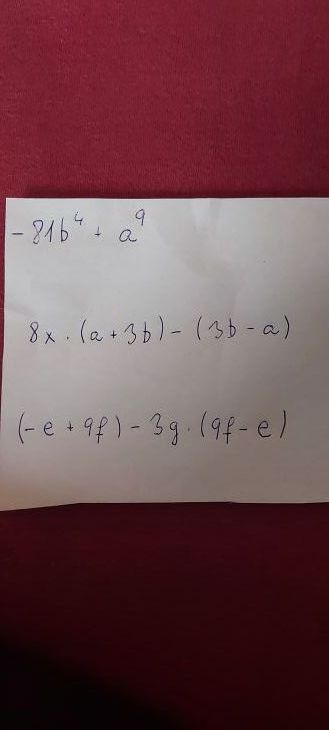 - 81b⁴ + a⁹
8x · (a + 3b) - (3b - a)
(- e + 9f) - 3g · (9f - e)